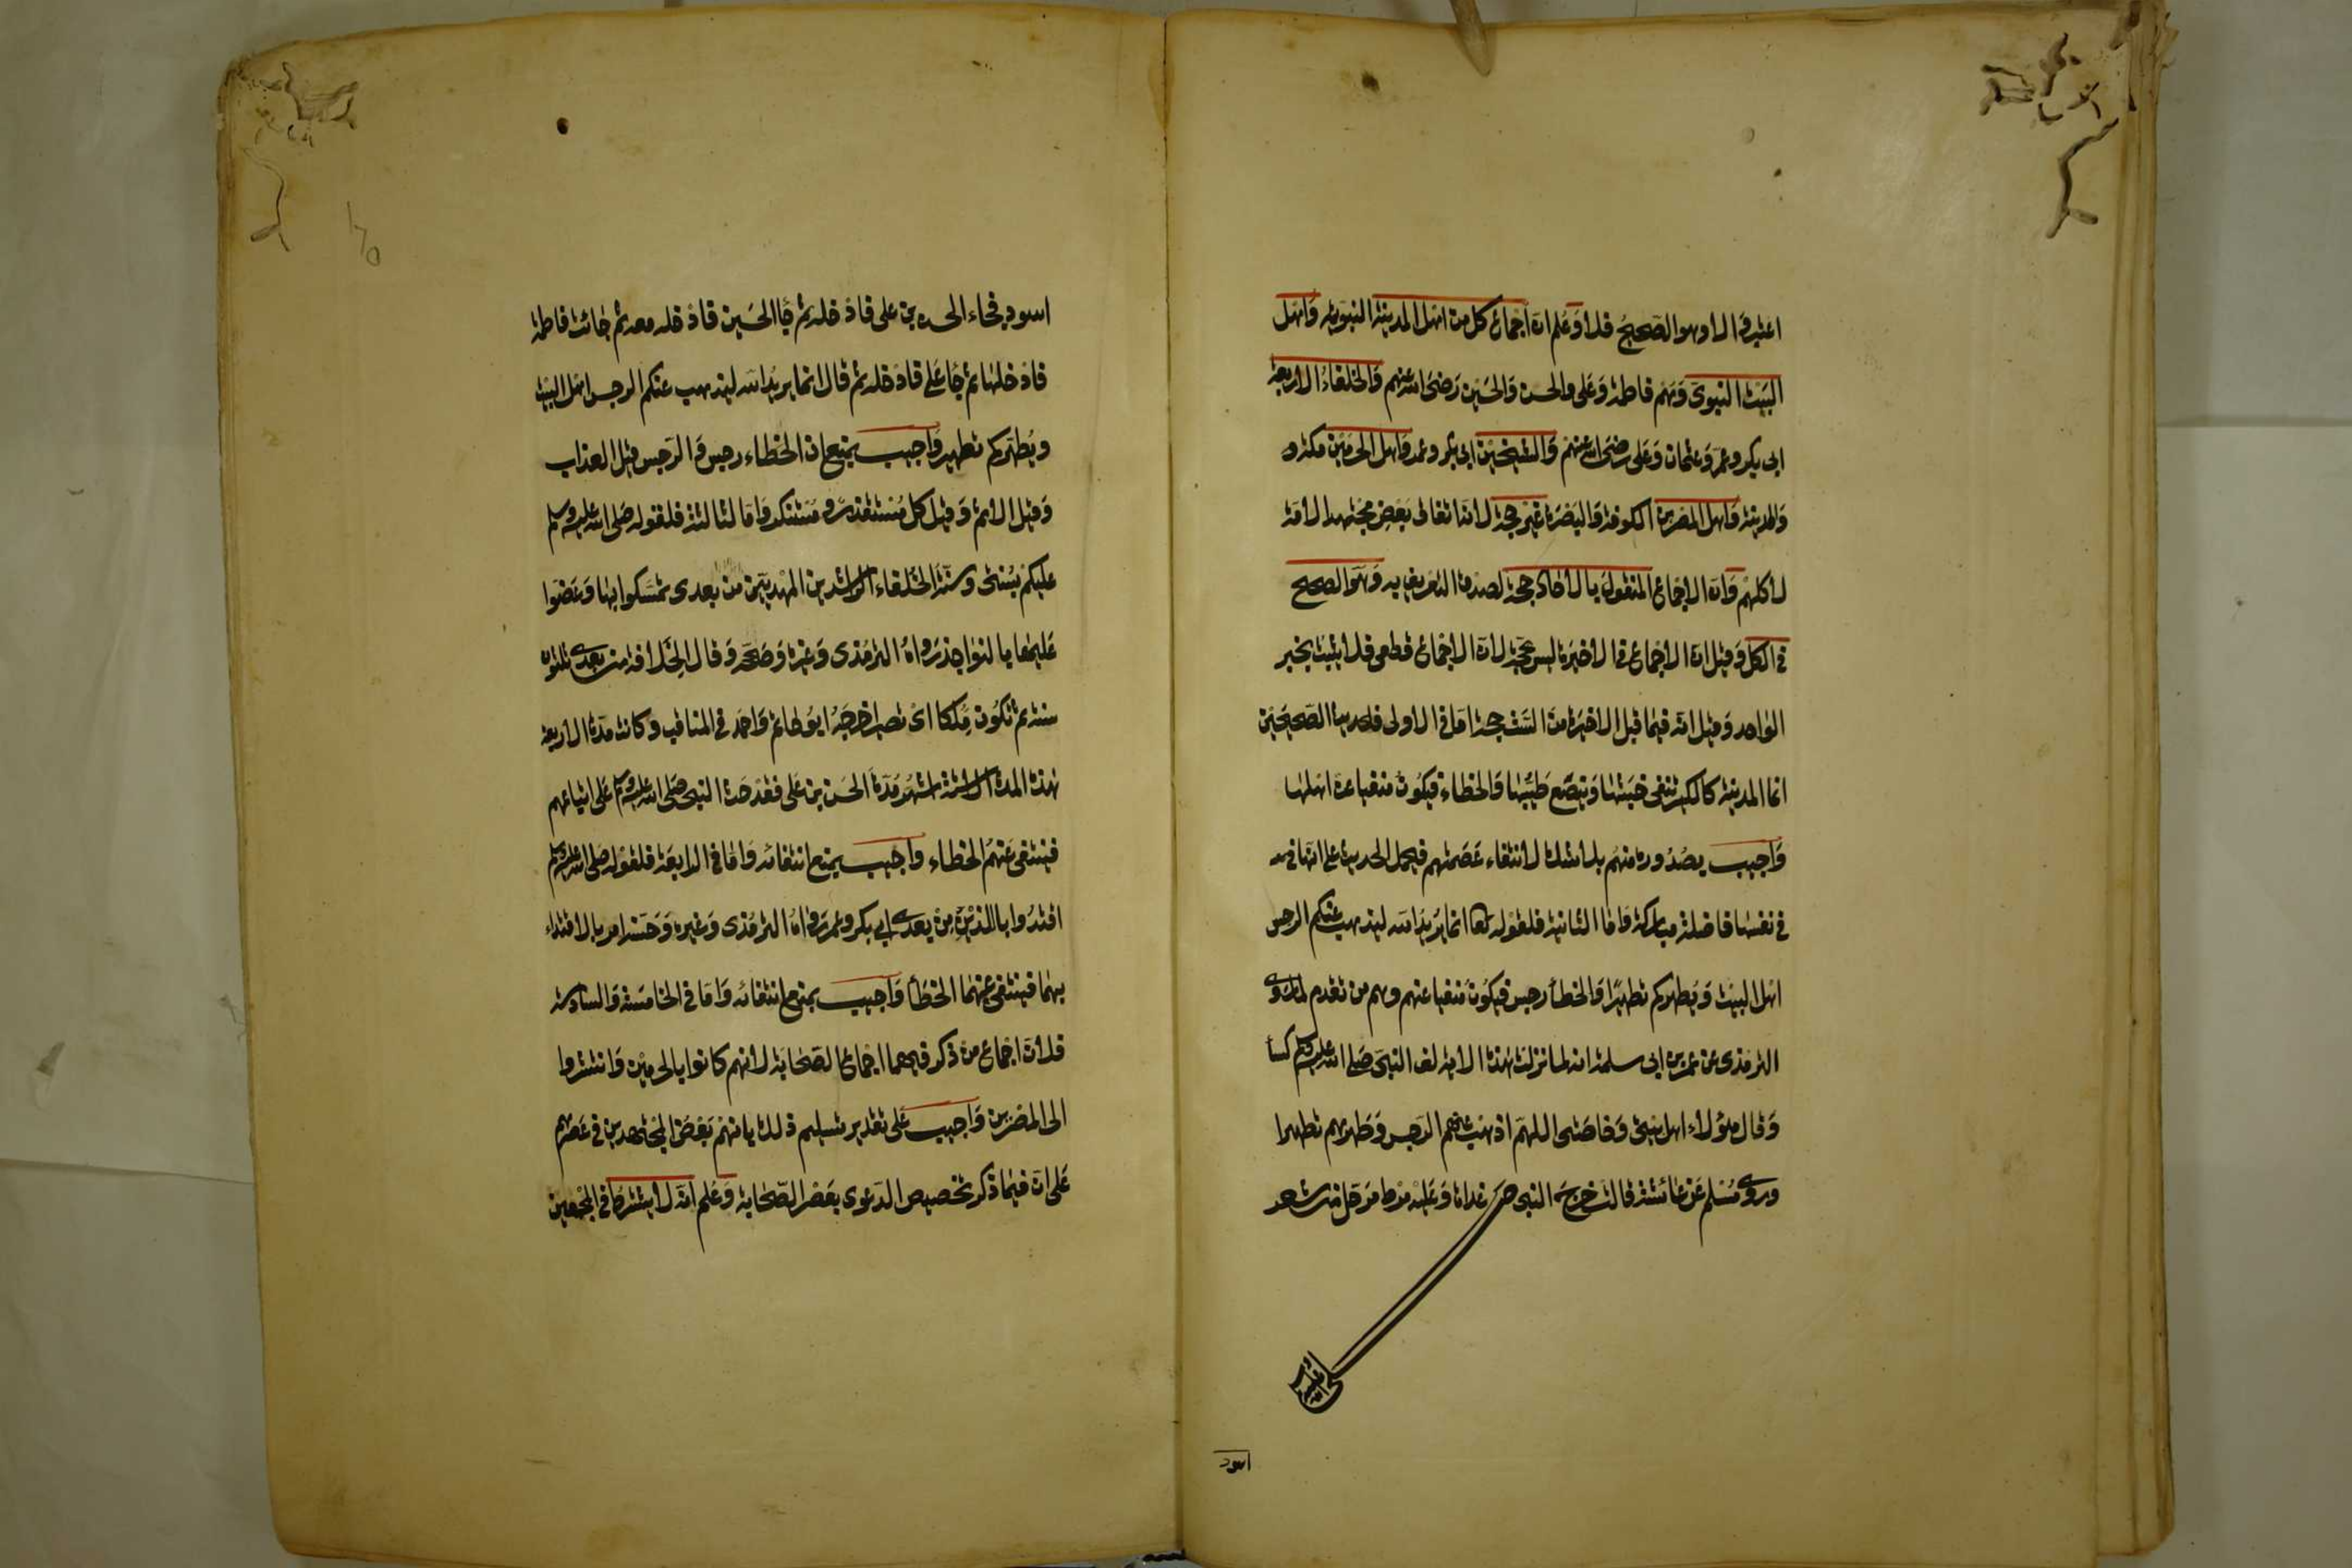 اعتبر والا وهو الصحيح فلا وعلم ان اجماع كل من اهل المدينة النبوية واهل
البيت النبوى وهم فاطمة وعلى والحسن والحسين رضى الله عنهم والخلفاء الاربعة
ابى بكر وعمر وعثمان وعلى رضى الله عنهم والشيخين ابى بكر وعمر واهل الحرمين مكة و
والمدينة واهل المصرين الكوفة والبصرة غير حجة لانه اتفاق بعض مجتهدى الامة
لا كلهم وان الاجماع المنقول بالاحاد حجة لصدق التعريف به وهو الصحيح
فى الكل وقيل ان الاجماع فى الاخيرة ليس بحجة لان الاجماع قطعى فلا يثبت بخبر
الواحد وقيل انه فيما قبل الاخيرة من الست حجة اما فى الاولى فلحديث الصحيحين
انما المدينة كالكير تنفى خبثها وينصع طيبها والخطاء فيكون منفيا عن اهلها
واجيب بصدوره منهم بلا شك لانتفاء عصمتهم فيحمل الحديث على انها فى
فى نفسها فاضلة مباركة واما الثانية فلقوله تعا انما يريد الله ليذهب عنكم الرجس
اهل البيت ويطهركم تطهيرا والخطأ رجس فيكون منفيا عنهم وهم من تقدم لما روى
الترمذى عن عمر بن ابى سلمة انه لما نزلت هذه الاية لف النبى صلى الله عليه وسلم كسأ
وقال هؤلاء اهل بيتى وخاصتى اللهم اذهب عنهم الرجس وطهرهم تطهيرا
وروى مسلم عن عائشة قالت خرج النبى صلى غداة وعليه مرط مرحل من شعر
اسود
اسود فجاء الحسن بن على فادخله ثم جا الحسين فادخله معه ثم جائت فاطمة
فادخلها ثم جا على فادخله ثم قال انما يريد الله ليذهب عنكم الرجس اهل البيت
ويطهركم تطهير واجيب بمنع ان الخطاء رجس والرجس قيل العذاب
وقيل الاثم وقيل كل مستقذر ومستنكر واما الثالثة فلقوله صلى الله عليه وسلم
عليكم بسنتى وسنة الخلفاء الراشدين المهديين من بعدى تمسكوا بها وعضوا
عليها بالنواجذ رواه الترمذى وغيره وصححه وقال الخلافة من بعدى ثلثون
سنة ثم تكون ملكا اى تصير اخرجه ابو حاتم واحمد فى المناقب وكانت مدة الاربعة
هذه المدة الا ستة اشهر مدة الحسن بن على فقد حث النبى صلى الله عليه وسلم على اتباعهم
فينتفى عنهم الخطاء واجيب بمنع انتفائه واما فى الرابعة فلقوله صلى الله عليه وسلم
اقتدوا باللذين من بعدى ابى بكر وعمر رواه الترمذى وغيره وحسنه امر بالاقتداء
بهما فينتفى عنهما الخطأ واجيب بمنع انتفائه واما فى الخامسة والسادسة
فلان اجماع من ذكر فيهما اجماع الصحابة لانهم كانوا بالحرمين وانتشروا
الى المصرين واجيب على تقدير تسليم ذلك بانهم بعض المجتهدين فى عصرهم
على ان فيما ذكر تخصيص الدعوى بعصر الصحابة وعلم انه لا يشترط فى المجمعين